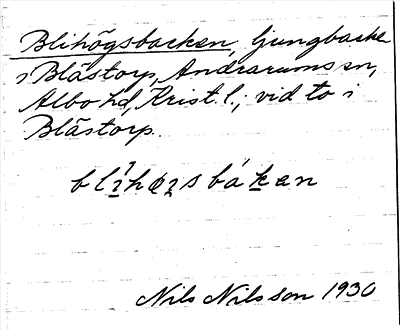 Blihögsbacken, ljungbacke
i Blåstorp, Andrarums sn,
Albo hd, Krist. l.; vid to i
Blåstorp.
Nils Nilsson 1930